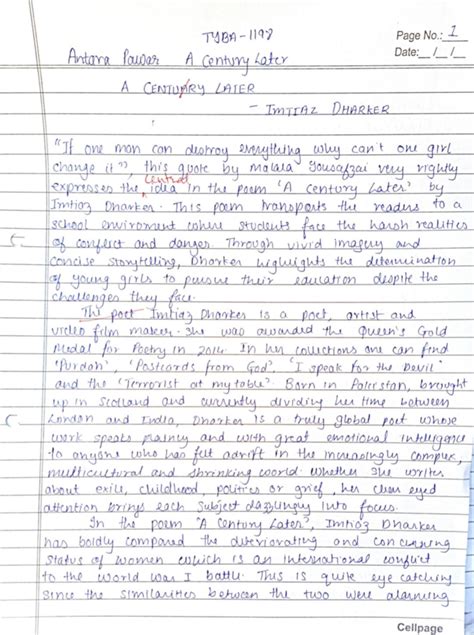 TYBA-1198
Page No.: 1
Date: _/_/_
Antara Pawar A Century Later
A CENTUARY LATER
- IMTIAZ DHARKER
"If one man can destroy everything why can't one girl
change it", this quote by Malala Yousafzai very rightly
central
expresses the idea in the poem 'A Century Later' by
Imtiaz Dharker. This poem transports the readers to a
school enviroment where students face the harsh realities
of conflict and danger. Through vivid imagery and
concise storytelling, Dharker highlights the determination
of young girls to pursue their education despite the
challenges they face.
The poet Imtiaz Dharker is a poet, artist and
video film maker. She was awarded the Queen's Gold
Medal for Poetry in 2014. In her collections one can find
'Purdah', 'Postcards from God', 'I speak for the Devil'
and the 'Terrorist at my table'. Born in Pakistan, brought
up in Scotland and currently dividing her time between
London and India, Dharker is a truly global poet whose
work speaks plainly and with great emotional intelligence
to anyone who has felt adrift in the increasingly complex,
multicultural and shrinking world. Whether she writes
about exile, childhood, politics or grief, her clear eyed
attention brings each subject dazzlingly into focus.
In the poem 'A Century Later', Imtiaz Dharker
has boldly compared the deteriorating and concerning
status of women which is an international conflict
to the world war I battle. This is quite eye catching
since the similarities between the two were alarming
Cellpage